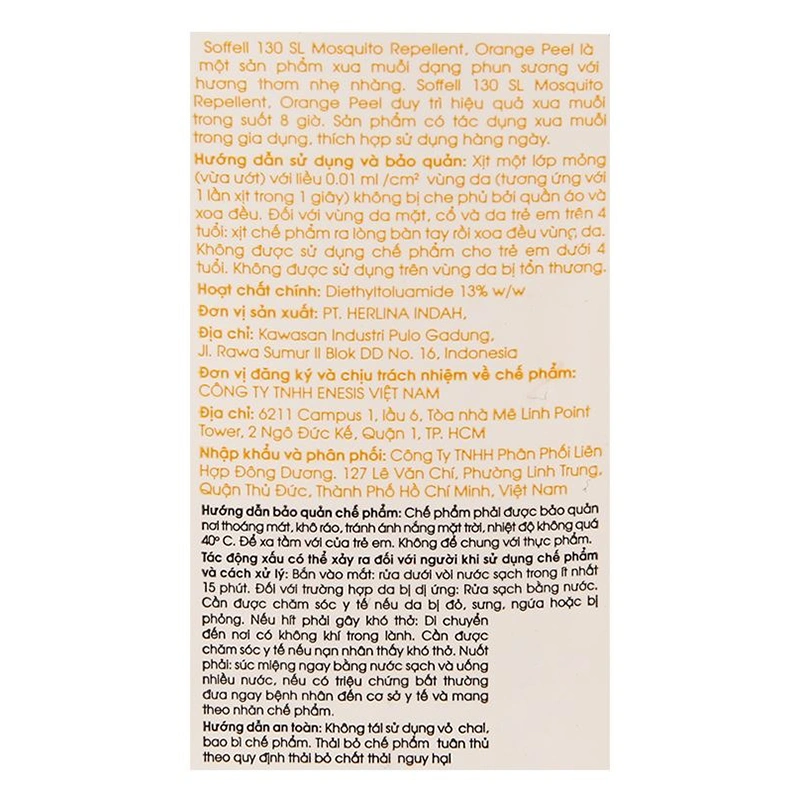 Soffell 130 SL Mosquito Repellent, Orange Peel là
một sản phẩm xua muỗi dạng phun sương với
hương thơm nhẹ nhàng. Soffell 130 SL Mosquito
Repellent, Orange Peel duy trì hiệu quả xua muỗi
trong suốt 8 giờ. Sản phẩm có tác dụng xua muỗi
trong gia dụng, thích hợp sử dụng hàng ngày.
Hướng dẫn sử dụng và bảo quản: Xịt một lớp mỏng
(vừa ướt) với liều 0.01 ml /cm² vùng da (tương ứng với
1 lần xịt trong 1 giây) không bị che phủ bởi quần áo và
xoa đều. Đối với vùng da mặt, cổ và da trẻ em trên 4
tuổi: xịt chế phẩm ra lòng bàn tay rồi xoa đều vùng da.
Không được sử dụng chế phẩm cho trẻ em dưới 4
tuổi. Không được sử dụng trên vùng da bị tổn thương.
Hoạt chất chính: Diethyltoluamide 13% w/w
Đơn vị sản xuất: PT. HERLINA INDAH,
Địa chỉ: Kawasan Industri Pulo Gadung,
Jl. Rawa Sumur II Blok DD No. 16, Indonesia
Đơn vị đăng ký và chịu trách nhiệm về chế phẩm:
CÔNG TY TNHH ENESIS VIỆT NAM
Địa chỉ: 6211 Campus 1, lầu 6, Tòa nhà Mê Linh Point
Tower, 2 Ngô Đức Kế, Quận 1, TP. HCM
Nhập khẩu và phân phối: Công Ty TNHH Phân Phối Liên
Hợp Đông Dương. 127 Lê Văn Chí, Phường Linh Trung,
Quận Thủ Đức, Thành Phố Hồ Chí Minh, Việt Nam
Hướng dẫn bảo quản chế phẩm: Chế phẩm phải được bảo quản
nơi thoáng mát, khô ráo, tránh ánh nắng mặt trời, nhiệt độ không quá
40° C. Để xa tầm với của trẻ em. Không để chung với thực phẩm.
Tác động xấu có thể xảy ra đối với người khi sử dụng chế phẩm
và cách xử lý: Bắn vào mắt: rửa dưới vòi nước sạch trong ít nhất
15 phút. Đối với trường hợp da bị dị ứng: Rửa sạch bằng nước.
Cần được chăm sóc y tế nếu da bị đỏ, sưng, ngứa hoặc bị
phỏng. Nếu hít phải gây khó thở: Di chuyển
đến nơi có không khí trong lành. Cần được
chăm sóc y tế nếu nạn nhân thấy khó thở. Nuốt
phải: súc miệng ngay bằng nước sạch và uống
nhiều nước, nếu có triệu chứng bất thường
đưa ngay bệnh nhân đến cơ sở y tế và mang
theo nhãn chế phẩm.
Hướng dẫn an toàn: Không tái sử dụng vỏ chai,
bao bì chế phẩm. Thải bỏ chế phẩm tuân thủ
theo quy định thải bỏ chất thải nguy hại